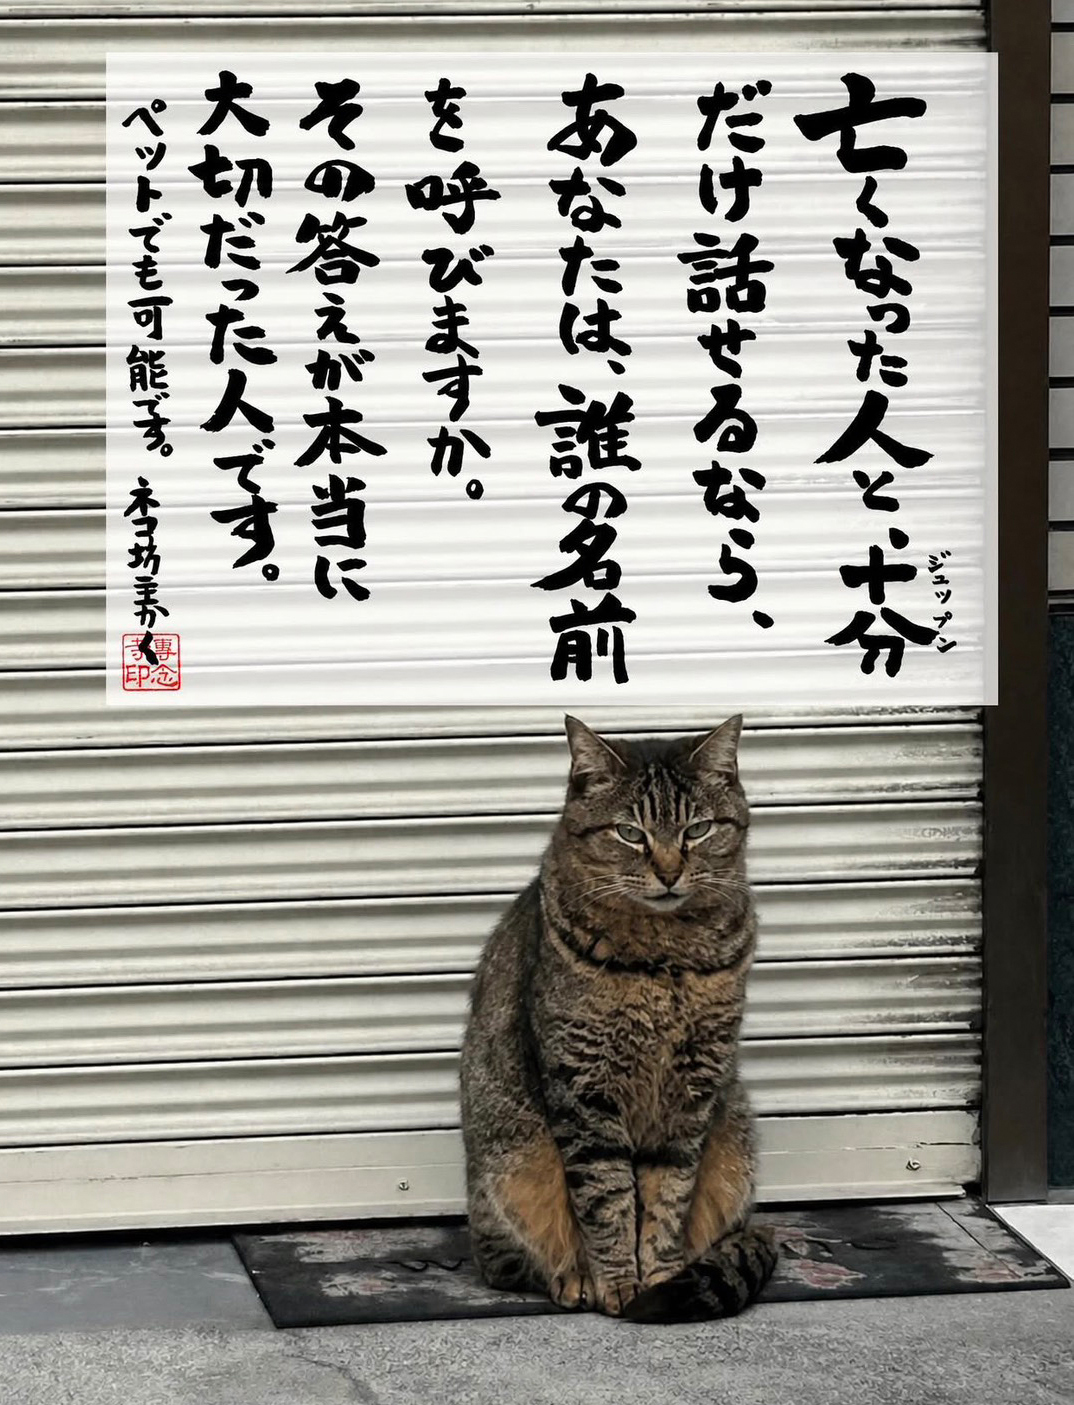 亡くなった人と、十分
ジュップン
だけ話せるなら、
あなたは、誰の名前
を呼びますか。
その答えが本当に
大切だった人です。
ペットでも可能です。 ネコ坊主かく
專念
寺印